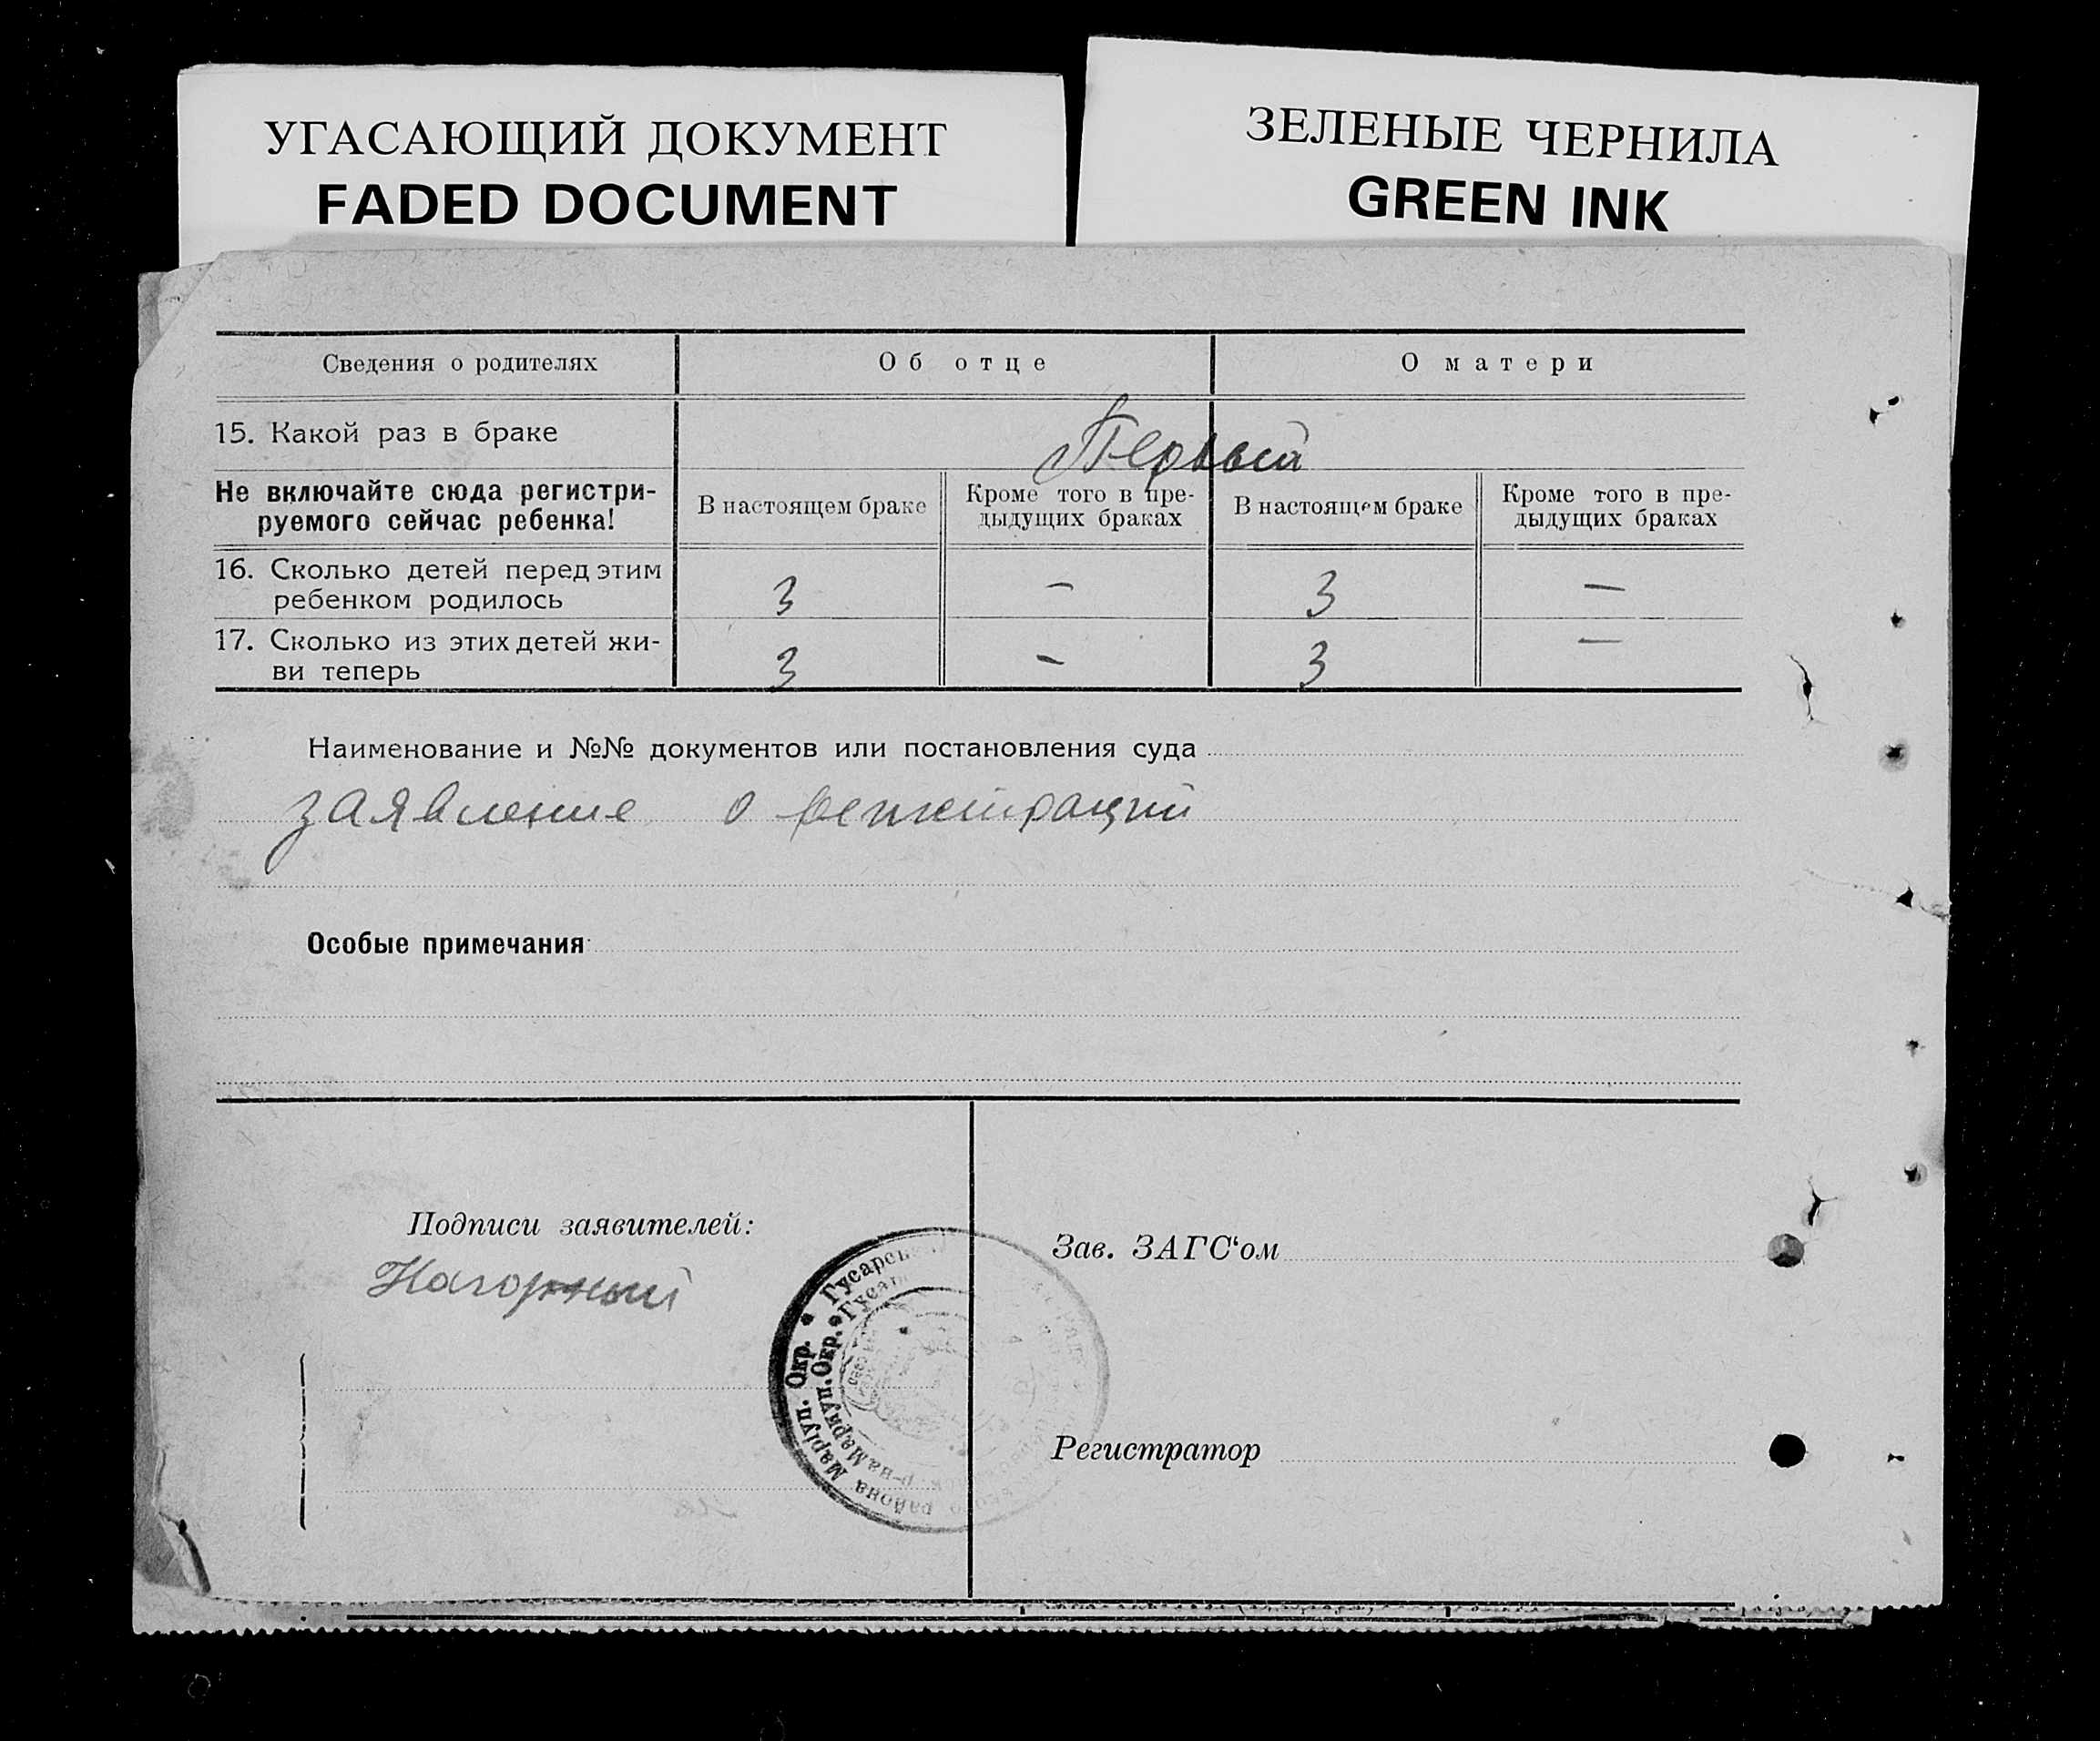 УГАСАЮЩИЙ ДОКУМЕНТ
FADED DOCUMENT
ЗЕЛЕНЫЕ ЧЕРНИЛА
GREEN INK
Сведения о родителях Об отце О матери
15. Какой раз в браке Первый
Не включайте сюда регистри-
руемого сейчас ребенка!
В настоящем браке
Кроме того в пре-
дыдущих браках
В настоящем браке
Кроме того в пре-
дыдущих браках
16. Сколько детей перед этим
ребенком родилось
3 – 3 –
17. Сколько из этих детей жи-
ви теперь
3 – 3 –
Наименование и №№ документов или постановления суда
заявление о регистрации
Особые примечания
Подписи заявителей:
Нагорный
Зав. ЗАГС‘ом
Регистратор
района Маріуп. Окр. Гусарсь
р-на Мариуп. Окр.